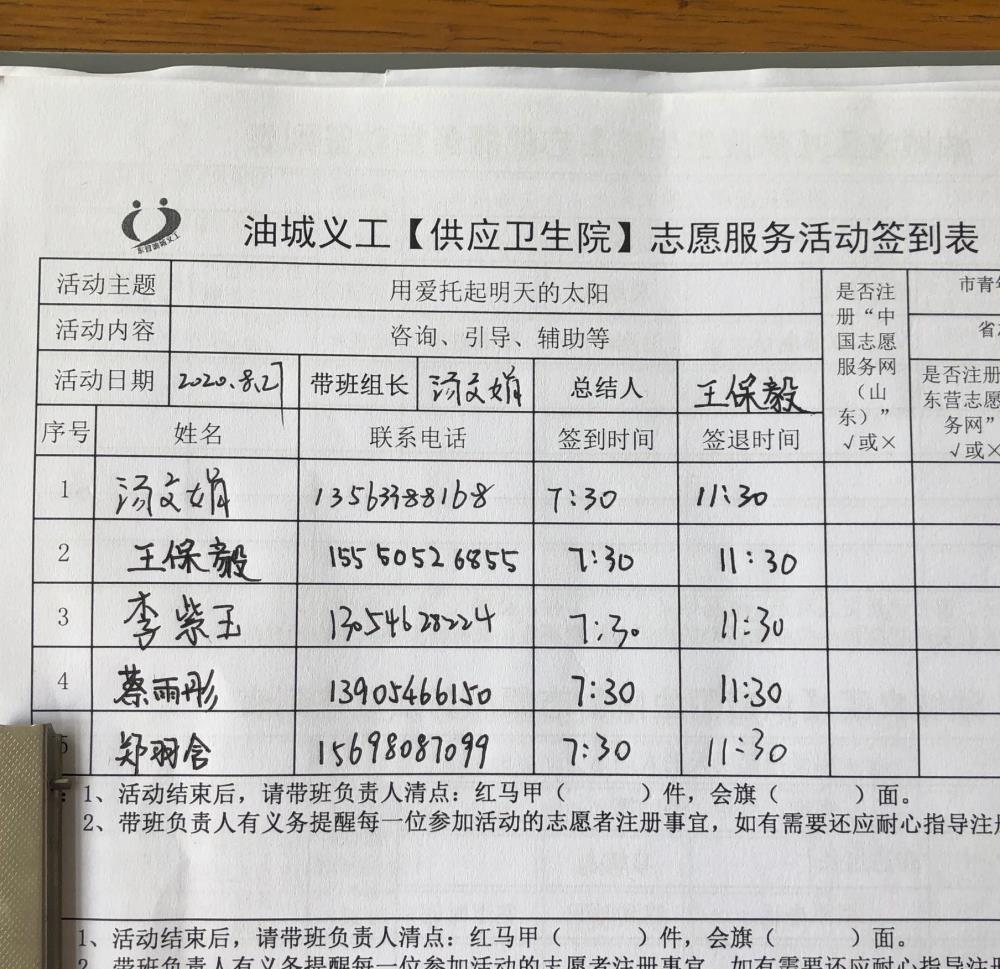 东营油城义工
油城义工【供应卫生院】志愿服务活动签到表
活动主题 用爱托起明天的太阳 是否注册“中国志愿服务网（山东）”√或× 市青年
活动内容 咨询、引导、辅助等 省
活动日期 2020.8.27 带班组长 汤文娟 总结人 王保毅 是否注册 东营志愿 务网” √或×
序号 姓名 联系电话 签到时间 签退时间
1 汤文娟 13563388168 7:30 11:30
2 王保毅 15550526855 7:30 11:30
3 李紫玉 13054628224 7:30 11:30
4 蔡雨彤 13905466150 7:30 11:30
5 郑羽含 15698087099 7:30 11:30
：1、活动结束后，请带班负责人清点：红马甲（ ）件，会旗（ ）面。
2、带班负责人有义务提醒每一位参加活动的志愿者注册事宜，如有需要还应耐心指导注册
1、活动结束后，请带班负责人清点：红马甲（ ）件，会旗（ ）面。
2、带班负责人有义务提醒每一位参加活动的志愿者注册事宜，如有需要还应耐心指导注